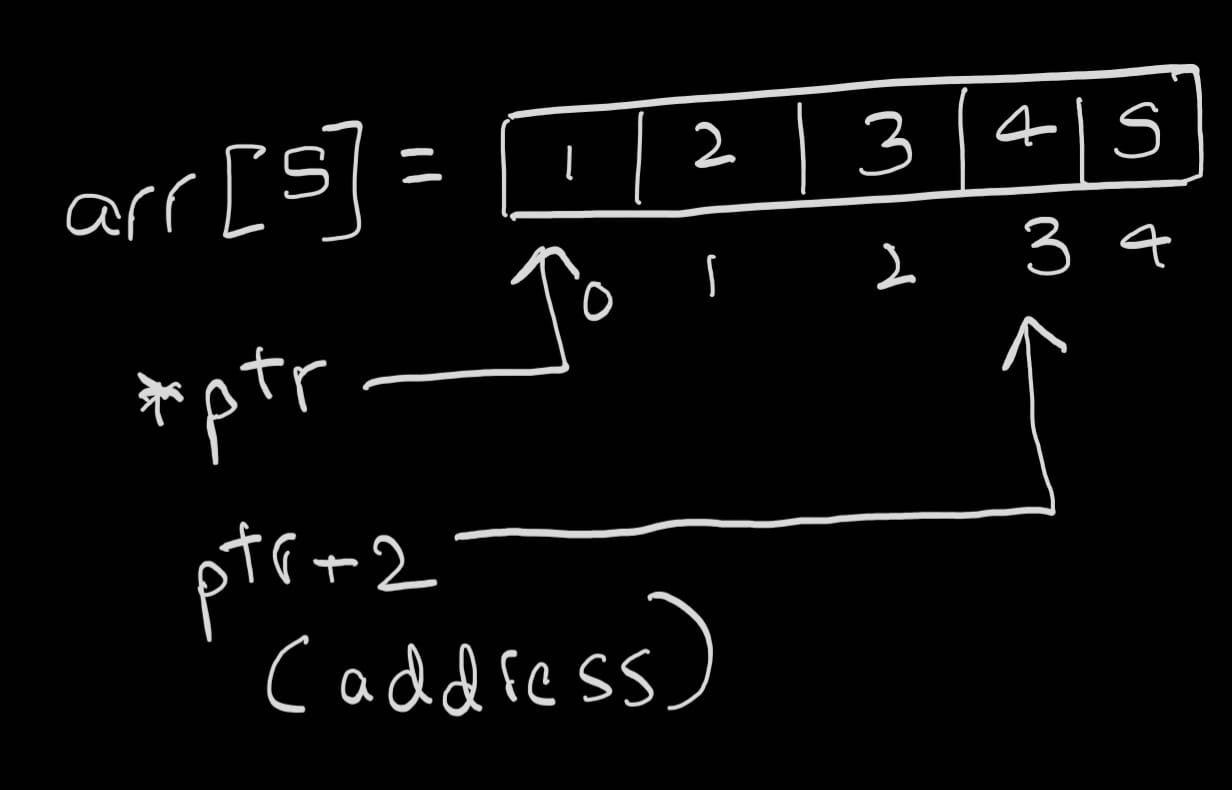 arr[5] = 1 2 3 4 5
0 1 2 3 4
*ptr
ptr+2
(address)